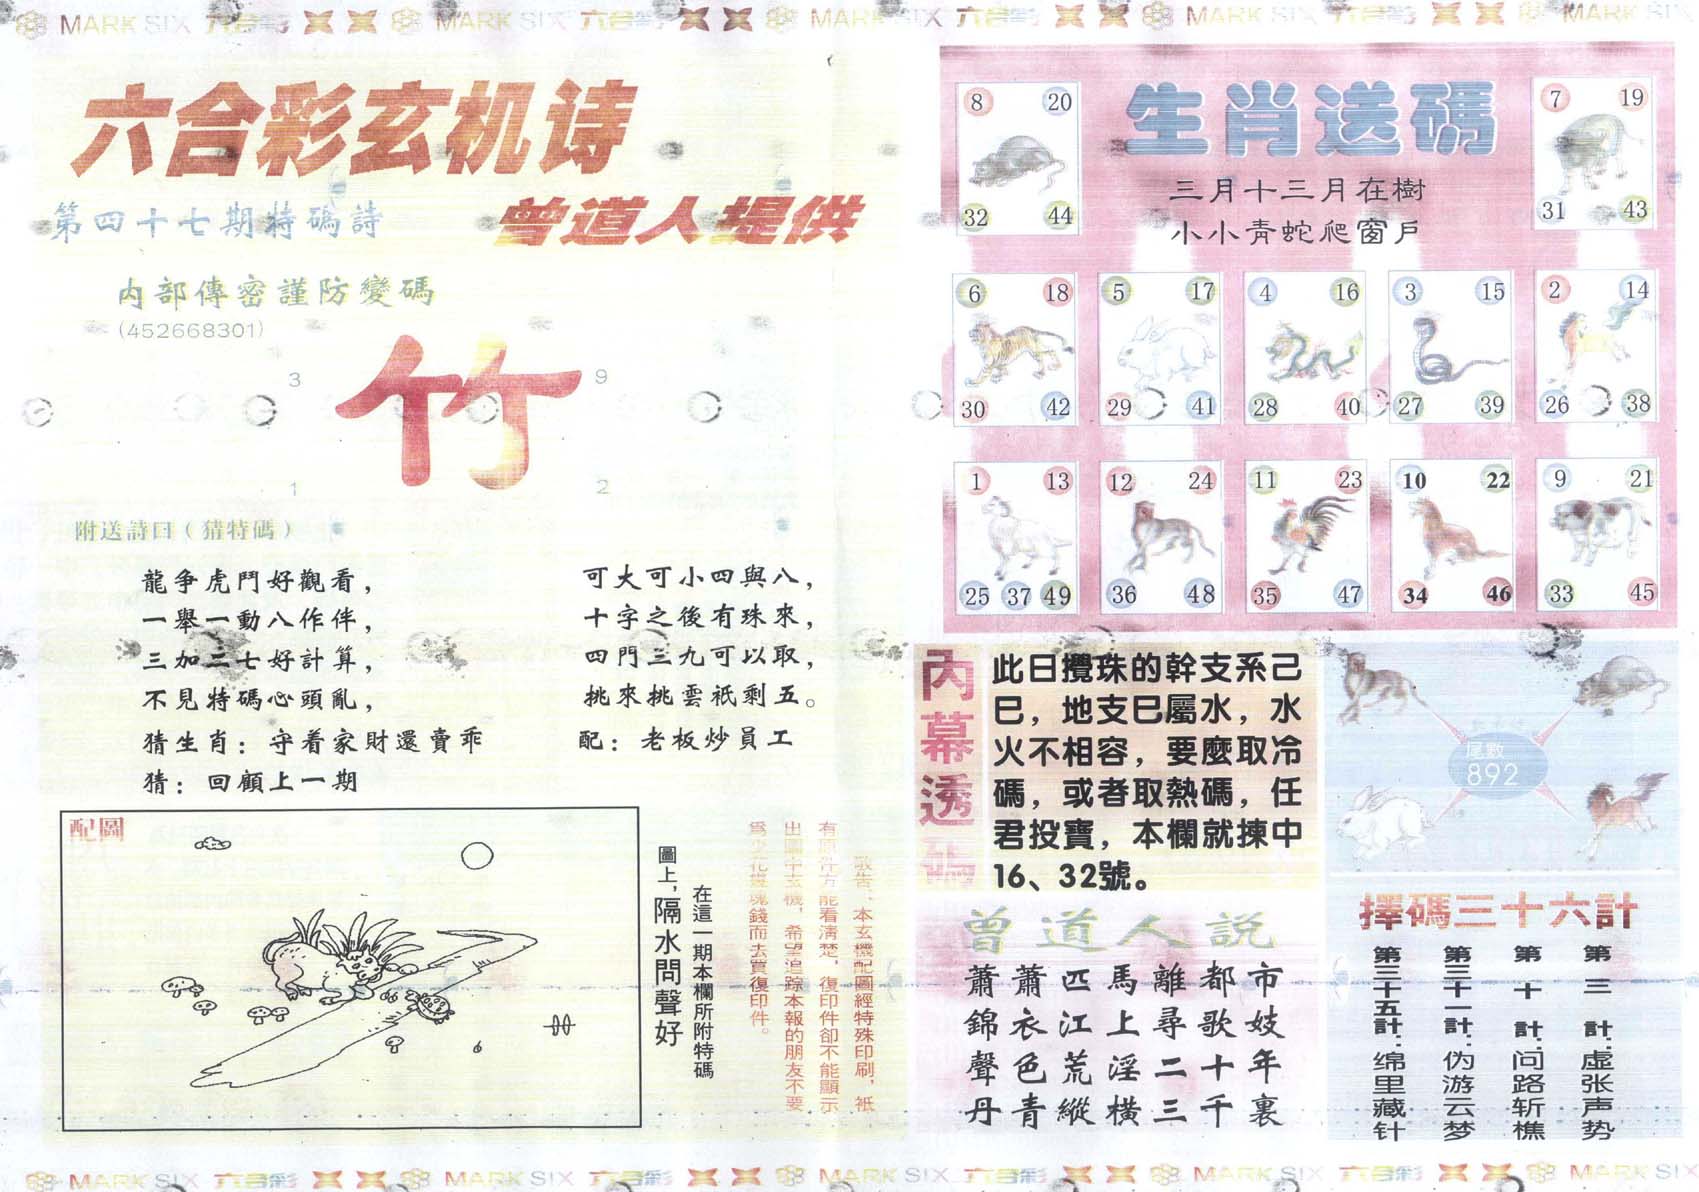 MARK SIX 六合彩 MARK SIX 六合彩 MARK SIX 六合彩 MARK SIX 六合彩 MARK SIX
六合彩玄机诗
第四十七期特碼詩
曾道人提供
内部傳密謹防變碼
(452668301)
3 9
竹
1 2
附送詩曰（猜特碼）
龍争虎鬥好觀看，
一舉一動八作伴，
三加二七好計算，
不見特碼心頭亂，
猜生肖：守着家財還賣乖
猜：回顧上一期
可大可小四與八，
十字之後有珠來，
四門三九可以取，
挑來挑雲祇剩五。
配：老板炒員工
配圖
在這一期本欄所附特碼
圖上，隔水問聲好
敬告：本玄機配圖經特殊印刷，祇
有原件方能看清楚，復印件卻不能顯示
出圖中玄機，希望追踪本報的朋友不要
爲少花幾塊錢而去買復印件。
生肖送碼
三月十三月在樹
小小青蛇爬窗戶
8 20
32 44
7 19
31 43
6 18
30 42
5 17
29 41
4 16
28 40
3 15
27 39
2 14
26 38
1 13
25 37 49
12 24
36 48
11 23
35 47
10 22
34 46
9 21
33 45
内幕透碼
此日攪珠的幹支系己
巳，地支巳屬水，水
火不相容，要麼取冷
碼，或者取熱碼，任
君投寶，本欄就揀中
16、32號。
尾數
892
曾道人説
市妓年裏
都歌十千
離尋二三
馬上淫橫
匹江荒縱
蕭衣色青
蕭錦聲丹
擇碼三十六計
第三計：虛张声势
第十計：问路斩樵
第三十一計：伪游云梦
第三十五計：绵里藏针
MARK SIX 六合彩 MARK SIX 六合彩 MARK SIX 六合彩 MARK SIX 六合彩 MARK SIX